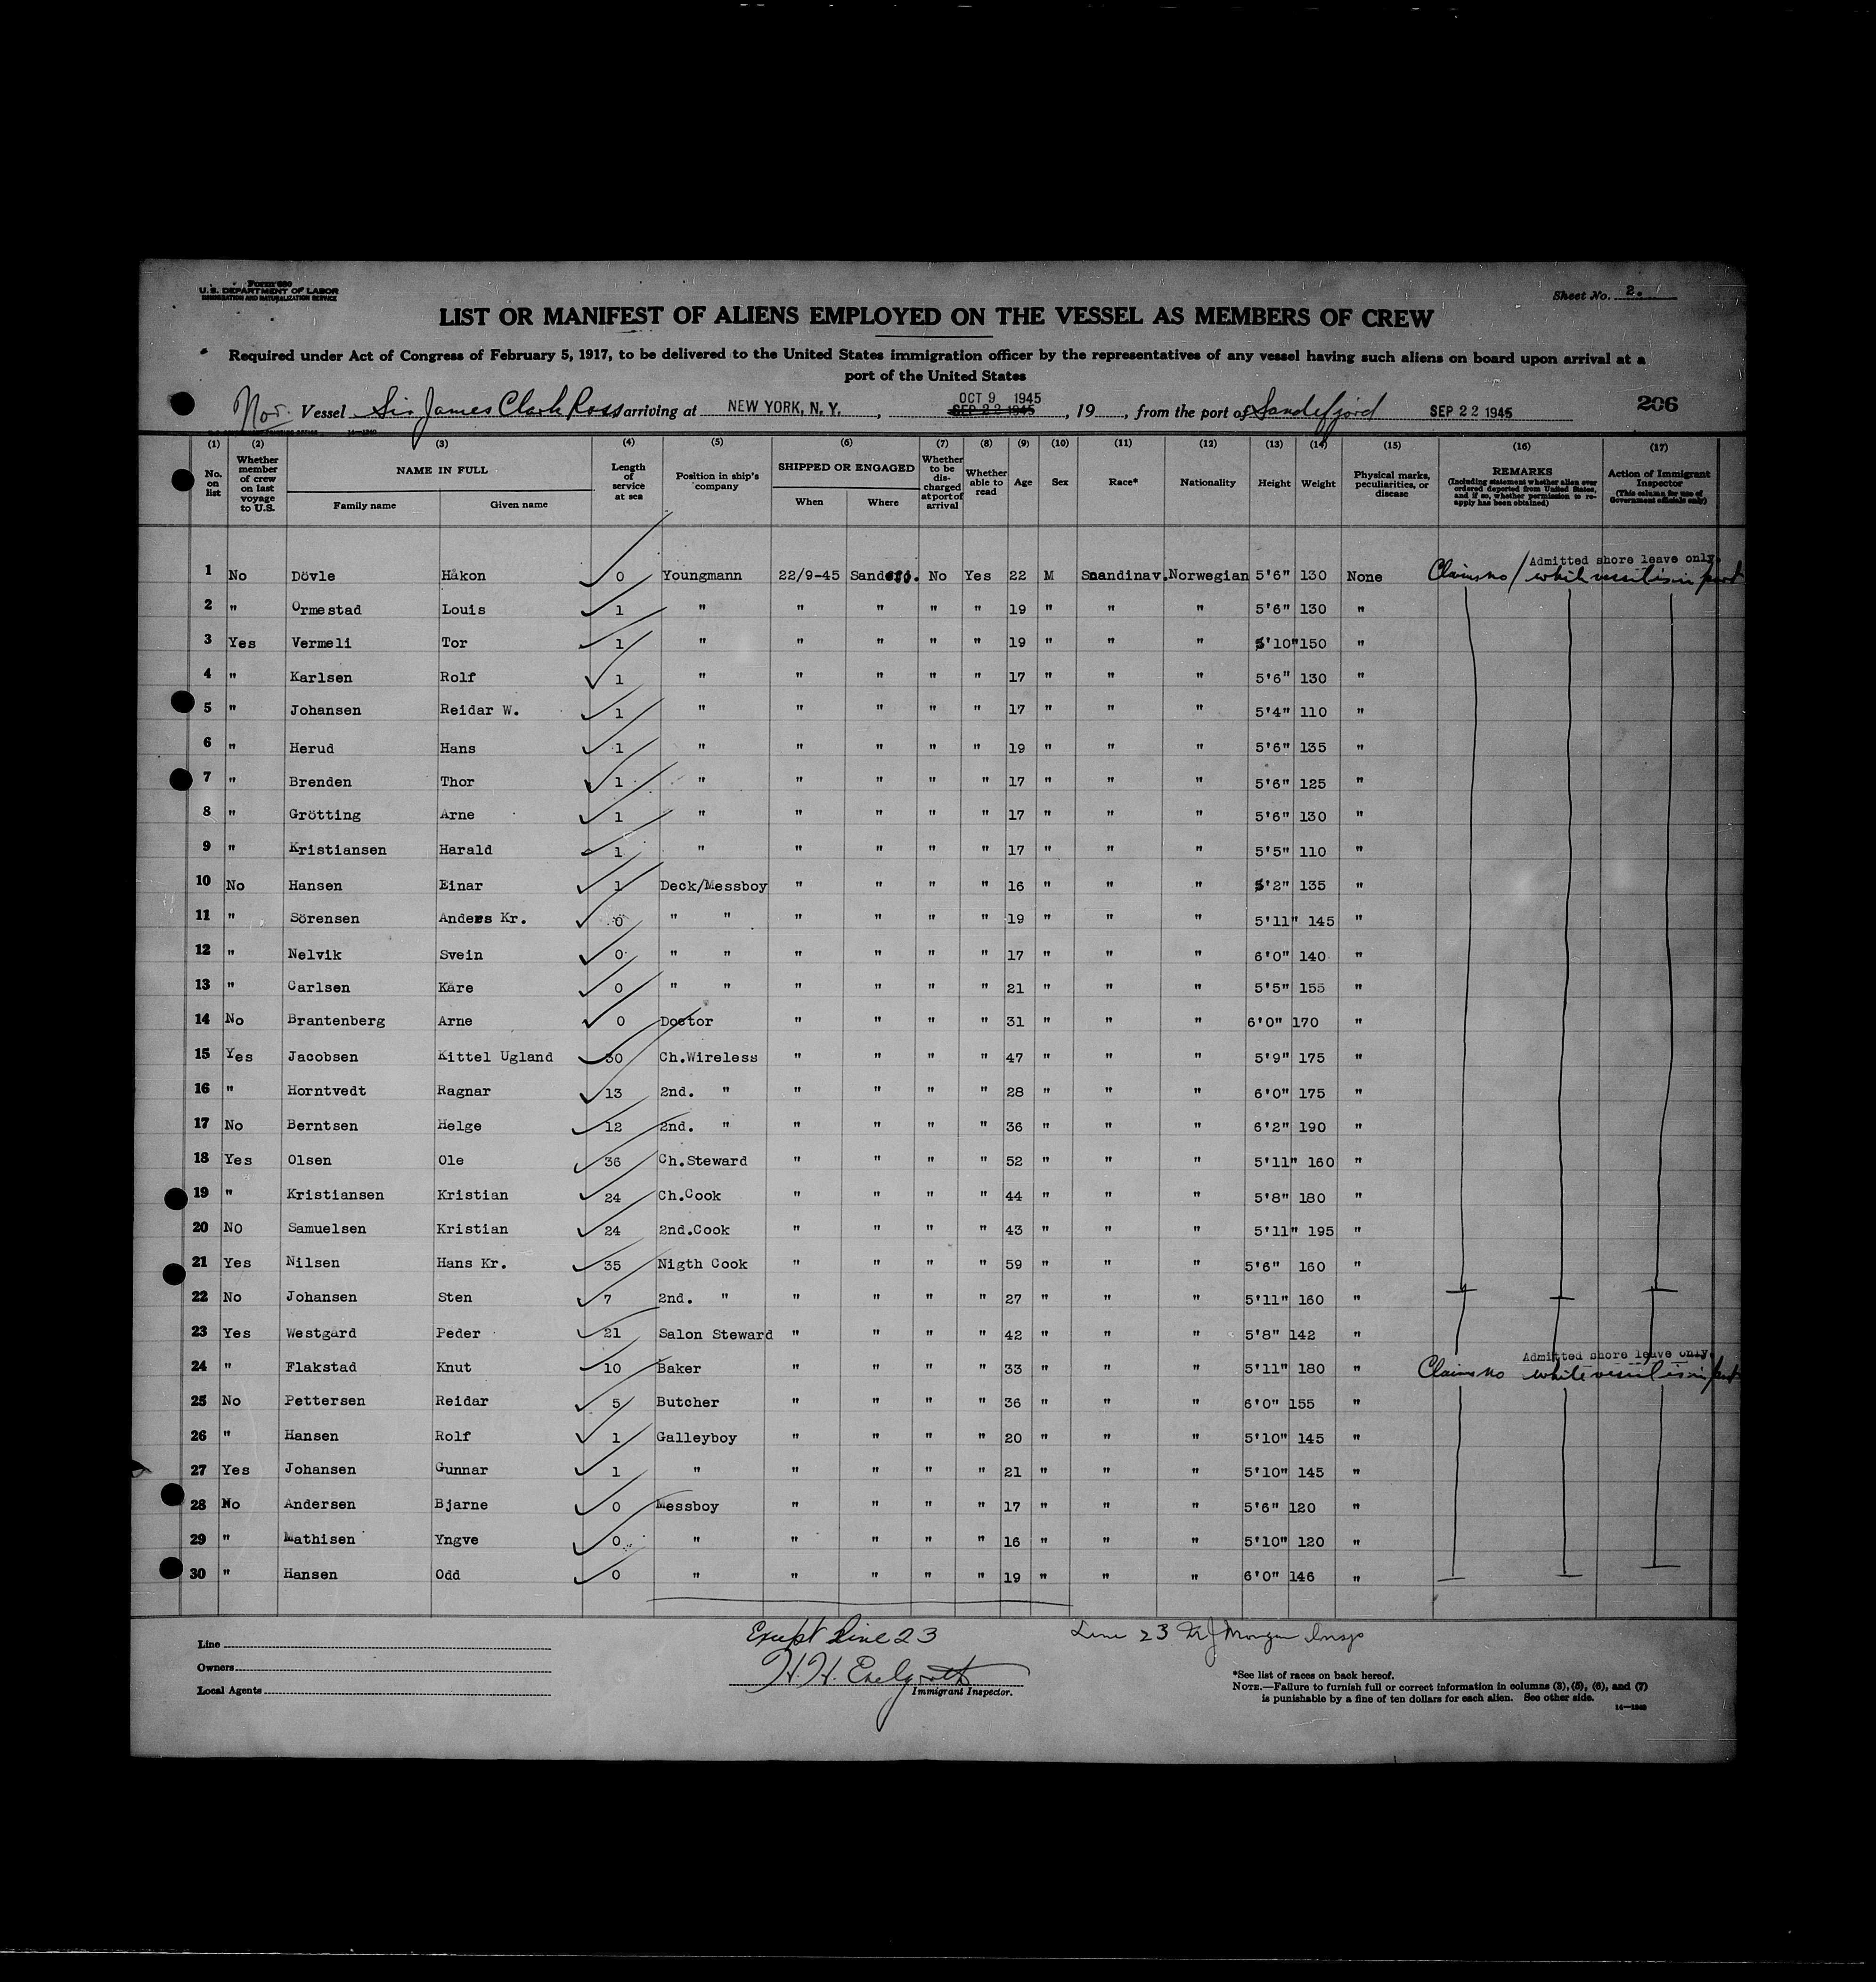 Form 680
U. S. DEPARTMENT OF LABOR
IMMIGRATION AND NATURALIZATION SERVICE
Sheet No. 2.
LIST OR MANIFEST OF ALIENS EMPLOYED ON THE VESSEL AS MEMBERS OF CREW
Required under Act of Congress of February 5, 1917, to be delivered to the United States immigration officer by the representatives of any vessel having such aliens on board upon arrival at a
port of the United States
Nor. Vessel Sir James Clark Ross arriving at NEW YORK, N. Y., OCT 9 1945 SEP 22 1945, 19, from the port of Sandefjord SEP 22 1945 206
(1) (2) (3) (4) (5) (6) (7) (8) (9) (10) (11) (12) (13) (14) (15) (16) (17)
No. on list Whether member of crew on last voyage to U.S. NAME IN FULL Family name Given name Length of service at sea Position in ship's company SHIPPED OR ENGAGED When Where Whether to be discharged at port of arrival Whether able to read Age Sex Race* Nationality Height Weight Physical marks, peculiarities, or disease REMARKS (Including statement whether alien ever ordered deported from United States, and if so, whether permission to reapply has been obtained) Action of Immigrant Inspector (This column for use of Government officials only)
Admitted shore leave only.
1 No Dövle Håkon 0 Youngmann 22/9-45 No Yes 22 M Norwegian 5'6" 130 None Claims no / while vessel is in port
2 " Ormestad Louis 1 " " " " " 19 " " " 5'6" 130 "
3 Yes Vermeli Tor 1 " " " " " 19 " " " 5'10" 150 "
4 " Karlsen Rolf 1 " " " " " 17 " " " 5'6" 130 "
5 " Johansen Reidar W. 1 " " " " " 17 " " " 5'4" 110 "
6 " Herud Hans 1 " " " " " 19 " " " 5'6" 135 "
7 " Brenden Thor 1 " " " " " 17 " " " 5'6" 125 "
8 " Grötting Arne 1 " " " " " 17 " " " 5'6" 130 "
9 " Kristiansen Harald 1 " " " " " 17 " " " 5'5" 110 "
10 No Hansen Einar 1 Deck/Messboy " " " " 16 " " " 5'2" 135 "
11 " Sörensen Anders Kr. 0 " " " " " " 19 " " " 5'11" 145 "
12 " Nelvik Svein 0 " " " " " " 17 " " " 6'0" 140 "
13 " Carlsen Kåre 0 " " " " " " 21 " " " 5'5" 155 "
14 No Brantenberg Arne 0 Doctor " " " " 31 " " " 6'0" 170 "
15 Yes Jacobsen Kittel Ugland 30 Ch.Wireless " " " " 47 " " " 5'9" 175 "
16 " Horntvedt Ragnar 13 2nd. " " " " " 28 " " " 6'0" 175 "
17 No Berntsen Helge 12 2nd. " " " " " 36 " " " 6'2" 190 "
18 Yes Olsen Ole 36 Ch.Steward " " " " 52 " " " 5'11" 160 "
19 " Kristiansen Kristian 24 Ch.Cook " " " " 44 " " " 5'8" 180 "
20 NO Samuelsen Kristian 24 2nd.Cook " " " " 43 " " " 5'11" 195 "
21 Yes Nilsen Hans Kr. 35 Nigth Cook " " " " 59 " " " 5'6" 160 "
22 No Johansen Sten 7 2nd. " " " " " 27 " " " 5'11" 160 "
23 Yes Westgård Peder 21 Salon Steward " " " " 42 " " " 5'8" 142 "
Admitted shore leave only.
24 " Flakstad Knut 10 Baker " " " " 33 " " " 5'11" 180 " Claims no while vessel is in port
25 No Pettersen Reidar 5 Butcher " " " " 36 " " " 6'0" 155 "
26 " Hansen Rolf 1 Galleyboy " " " " 20 " " " 5'10" 145 "
27 Yes Johansen Gunnar 1 " " " " " 21 " " " 5'10" 145 "
28 No Andersen Bjarne 0 Messboy " " " " 17 " " " 5'6" 120 "
29 " Mathisen Yngve 0 " " " " " 16 " " " 5'10" 120 "
30 " Hansen Odd 0 " " " " " 19 " " " 6'0" 146 "
Except Line 23
Line 23 Morgan Insp
Line
Owners
Local Agents
H. H.
Immigrant Inspector.
*See list of races on back hereof.
NOTE.—Failure to furnish full or correct information in columns (3), (5), (6), and (7)
is punishable by a fine of ten dollars for each alien. See other side.